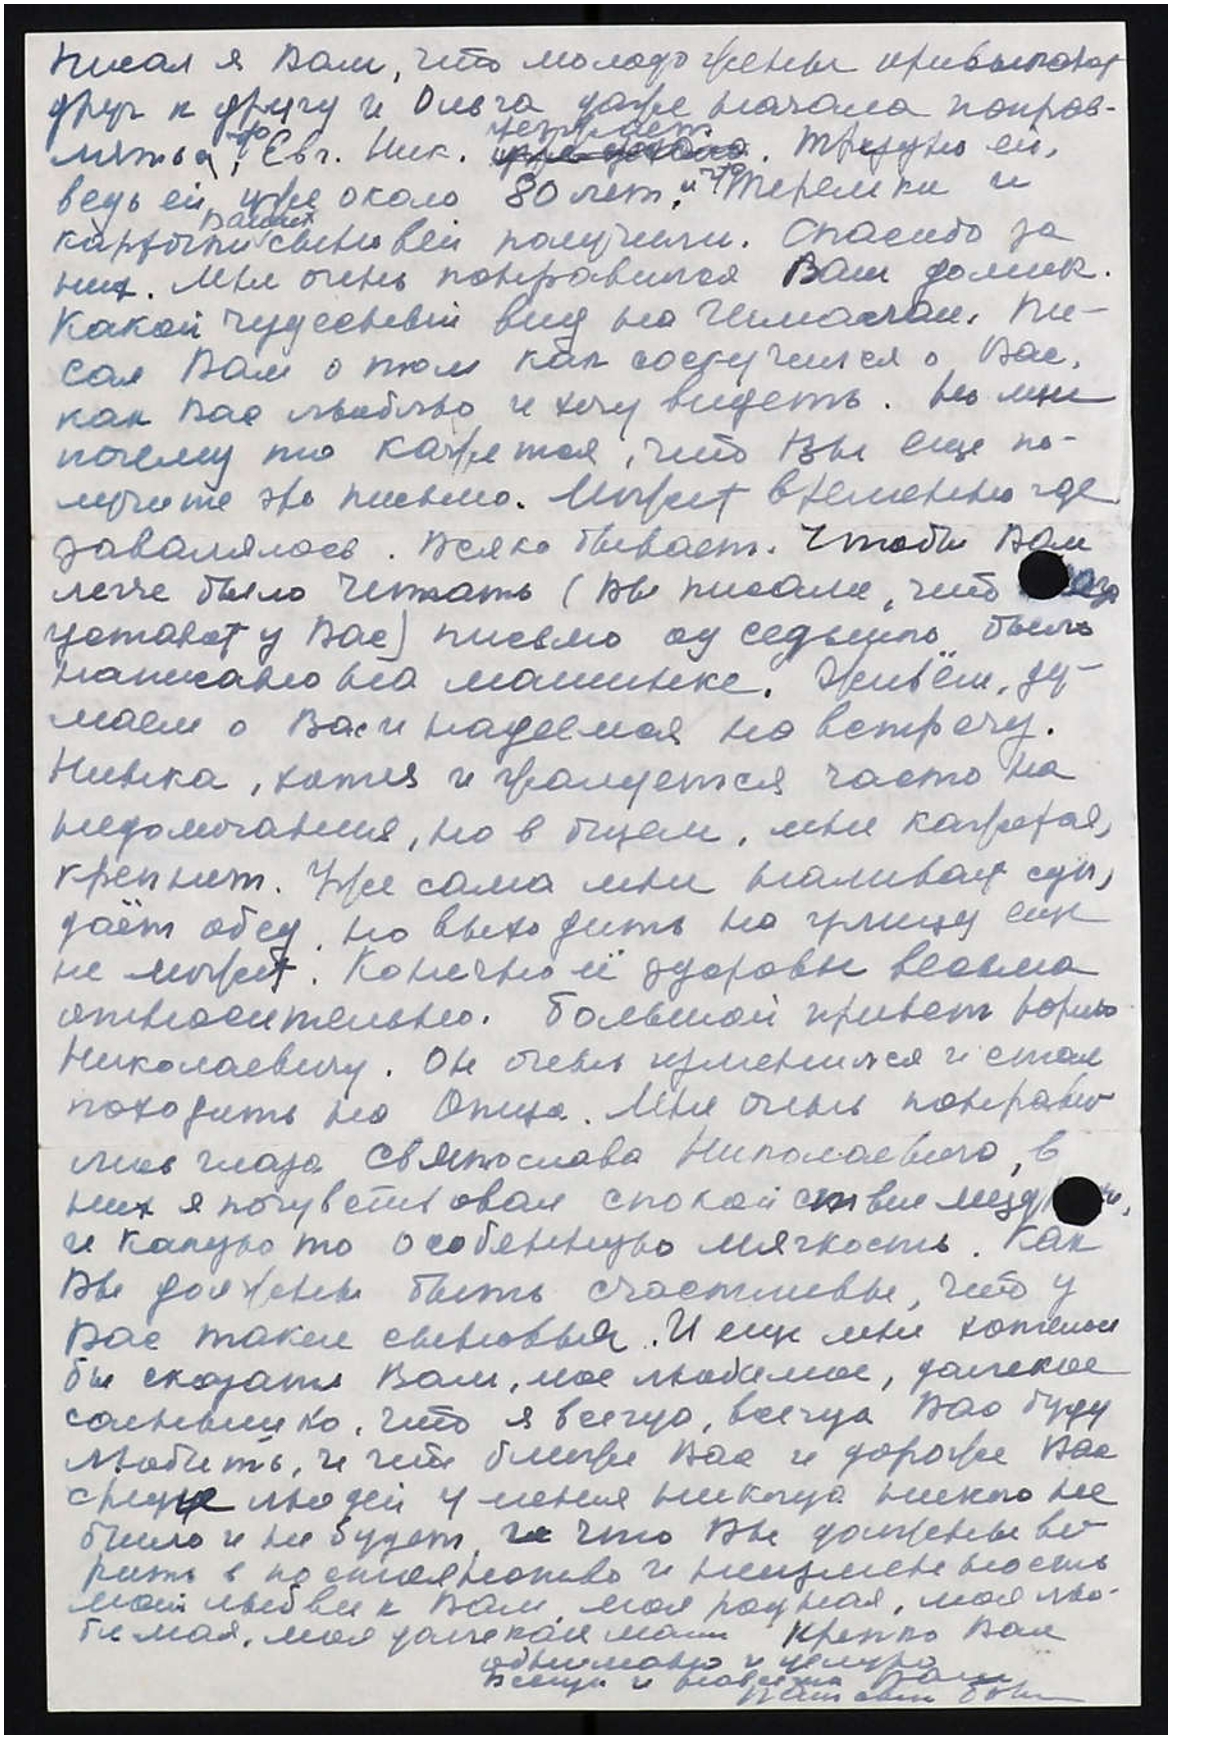 Писал я Вам, что молодожены привыкают
друг к другу и Ольга даже начала поправ-
ляться, то Евг. Ник. чего ждет. Трудно ей,
ведь ей уже около 80 лет. и что Терелки и
карточки Ваших сыновей получили. Спасибо за
них. Мне очень понравился Ваш домик.
Какой чудесный вид на Гималаи. Пи-
сал Вам о том как соскучился о Вас,
как Вас люблю и хочу видеть. Но мне
почему то кажется, что Вы еще по-
лучите это письмо. Может временно где
завалялось. Всяко бывает. Чтобы Вам
легче было читать (Вы писали, что глаза
устают у Вас) письмо от седьмого было
написано на машинке. Живём, ду-
маем о Вас и надеемся на встречу.
Нинка, хотя и жалуется часто на
недомогания, но в общем, мне кажется,
крепнет. Уже сама мне наливает суп,
даёт обед, но выходить на улицу еще
не может. Конечно её здоровье весьма
относительно. Большой привет Юрию
Николаевичу. Он очень изменился и стал
походить на Отца. Мне очень понрави-
лись глаза Святослава Николаевича, в
них я почувствовал спокойствие
и какую то особенную мягкость. Как
Вы должны быть счастливы, что у
Вас такие сыновья. И еще мне хотелось
бы сказать Вам, мое любимое, далекое
солнышко, что я всегда, всегда Вас буду
любить, и что ближе Вас и дороже Вас
среди людей у меня никогда никого не
было и не будет, и что Вы должны ве-
рить в постоянство и неизменность
моей любви к Вам, моя родная, моя лю-
бимая, моя далекая мама Крепко Вас
обнимаю и целую
Всегда и навсегда Ваш